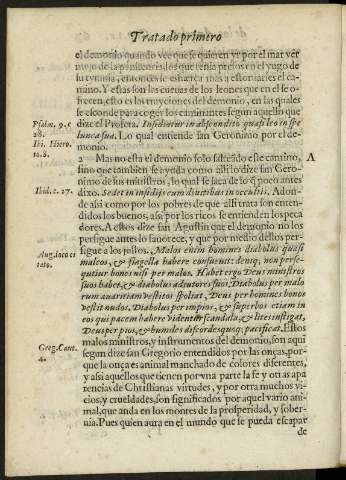 Tratado primero
el demonio quando vee que se quieren yr por el mar ver
mejo de la penitencia, los que tenia presos en el yugo de
su tyrania, entonces se esfuerça mas a estoruarles el ca-
mino. Y estas son las cueuas de los leones que en el se o-
frecen, esto es las trayciones del demonio, en las quales
se esconde para coger los caminantes segun aquello que
dize el Profeta. Insidiatur in abscondito quasi leo in spe
lunca sua. Lo qual entiende san Geronimo por el de-
monio.
Psalm. 9. c
28.
Ibi. Hiero.
to. 8.
2 Mas no esta el demonio solo salteãdo este camino,
sino que tambien se ayuda como alli lo dize san Gero-
nimo de sus ministros, lo qual se saca de lo q̃ poco antes
dixo. Sedet in insidijs cum diuitibus in occultis. Adon-
de assi como por los pobres de que alli trata son enten-
didos los buenos, assi por los ricos se entienden los peca
dores. A estos dize san Agustin que el demonio no los
persigue antes lo fauorece, y que por medio dellos per-
sigue a los justos. Malos enim homines diabolus quasi
malleos, & flagella habere consueuit: deniq; non perse-
quitur bonos nisi per malos. Habet ergo Deus ministros
suos habet, & diabolus adjutores suos, Diabolus per malo
rum auaritiam vestitos spoliat, Deus per homines bonos
vestit nudos, Diabolus per impios, & superbos etiam in
eos qui pacem habere videntur scandala, & lites instigat,
Deus per pios, & humiles discordes quoq; pacificat. Estos
malos ministros, y instrumentos del demonio, son aqui
segun dize san Gregorio entendidos por las onças, por-
que la onça es animal manchado de colores diferentes,
y assi aquellos que tienen por vna parte la fe y otras apa
rencias de Christianas virtudes, y por otra muchos vi-
cios, y crueldades, son significados por aquel vario ani-
mal, que anda en los montes de la prosperidad, y sober-
uia. Pues quien aura en el mundo que se pueda escapar
de
A
Ibid. c. 27.
Aug. loco ci
tato.
Greg. Cant.
4.